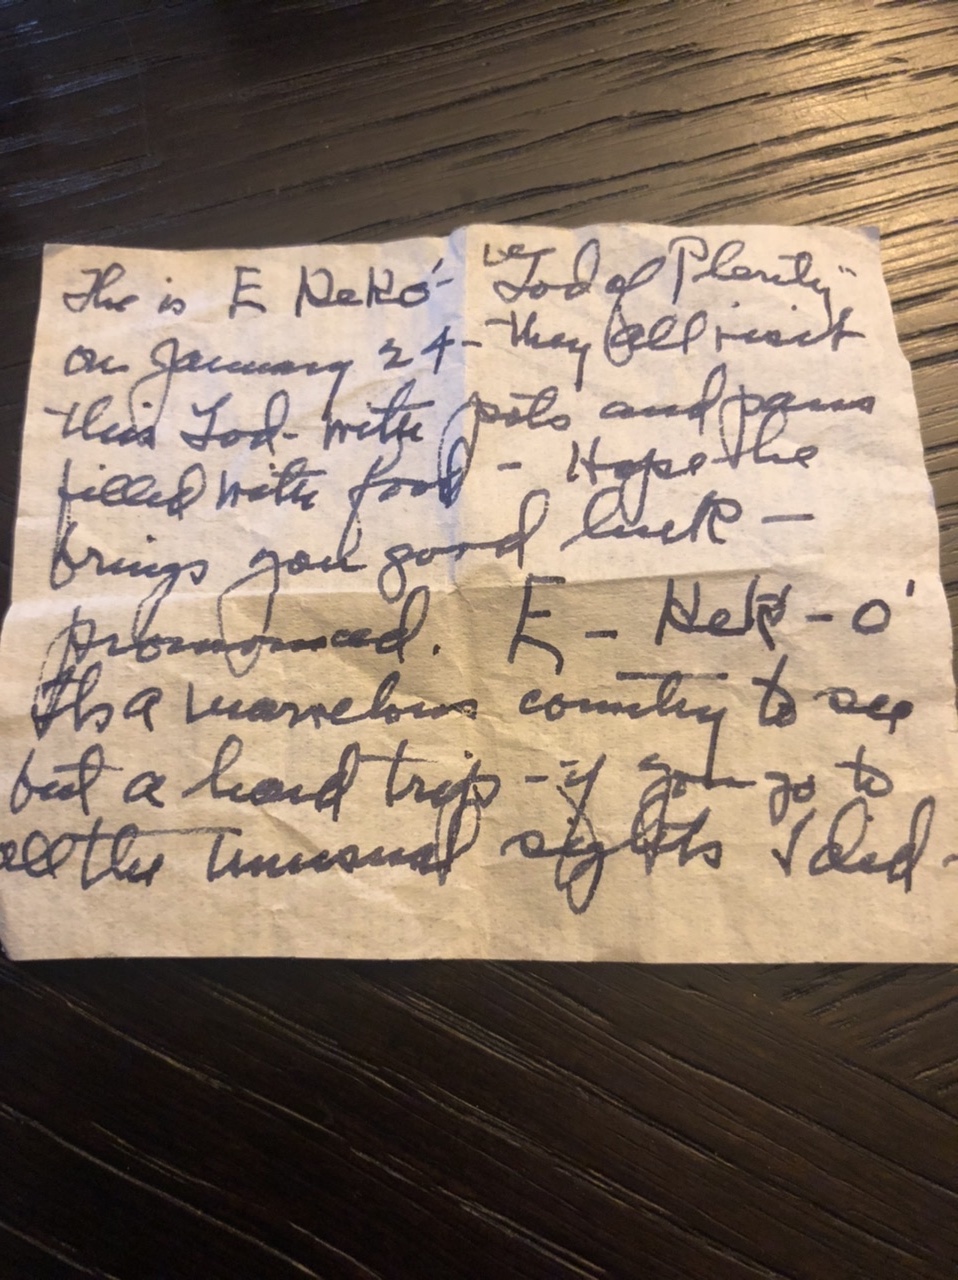 The is E KeKó - "God of Plenty"
on January 24 - they all visit
this God - with pots and pans
filled with food - Hope the
brings you good luck -
pronounced. E - Hek - o'
Its a marvelous country to see
but a hard trip - if you go to
all the unusual sights I did -